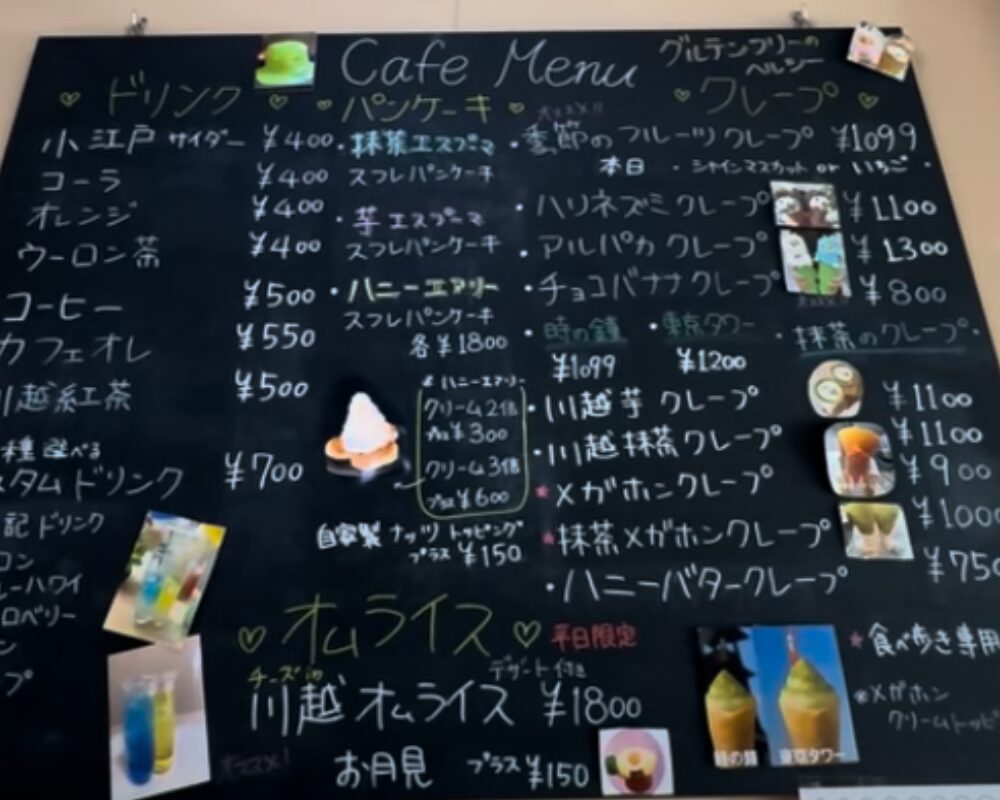 Cafe Menu
グルテンフリーの
ヘルシー
ドリンク
小江戸サイダー ¥400
コーラ ¥400
オレンジ ¥400
ウーロン茶 ¥400
コーヒー ¥500
カフェオレ ¥550
川越紅茶 ¥500
種 選べる
スタムドリンク ¥700
記ドリンク
コン
ーハワイ
ロベリー
ン
プ
パンケーキ
・抹茶エスプーマ
スフレパンケーキ
・芋エスプーマ
スフレパンケーキ
・ハニーエアリー
スフレパンケーキ
各¥1800
ハニーエアリー
クリーム2倍
プラス¥300
クリーム3倍
プラス¥600
自家製 ナッツ トッピング
プラス ¥150
クレープ
オススメ!!
・季節のフルーツクレープ ¥1099
本日 ・シャインマスカット or いちご・
・ハリネズミクレープ ¥1100
・アルパカクレープ ¥1300
・チョコバナナクレープ ¥800
・時の鐘 ・東京タワー ・抹茶のクレープ・
¥1099 ¥1200
・川越芋クレープ ¥1100
・川越抹茶クレープ ¥1100
★メガホンクレープ ¥900
★抹茶メガホンクレープ ¥1000
・ハニーバタークレープ ¥750
オムライス
平日限定
チーズin デザート付き
川越オムライス ¥1800
お月見 プラス¥150
オススメ!
時の鐘 東京タワー
★食べ歩き専用
※メガホン
クリームトッピ